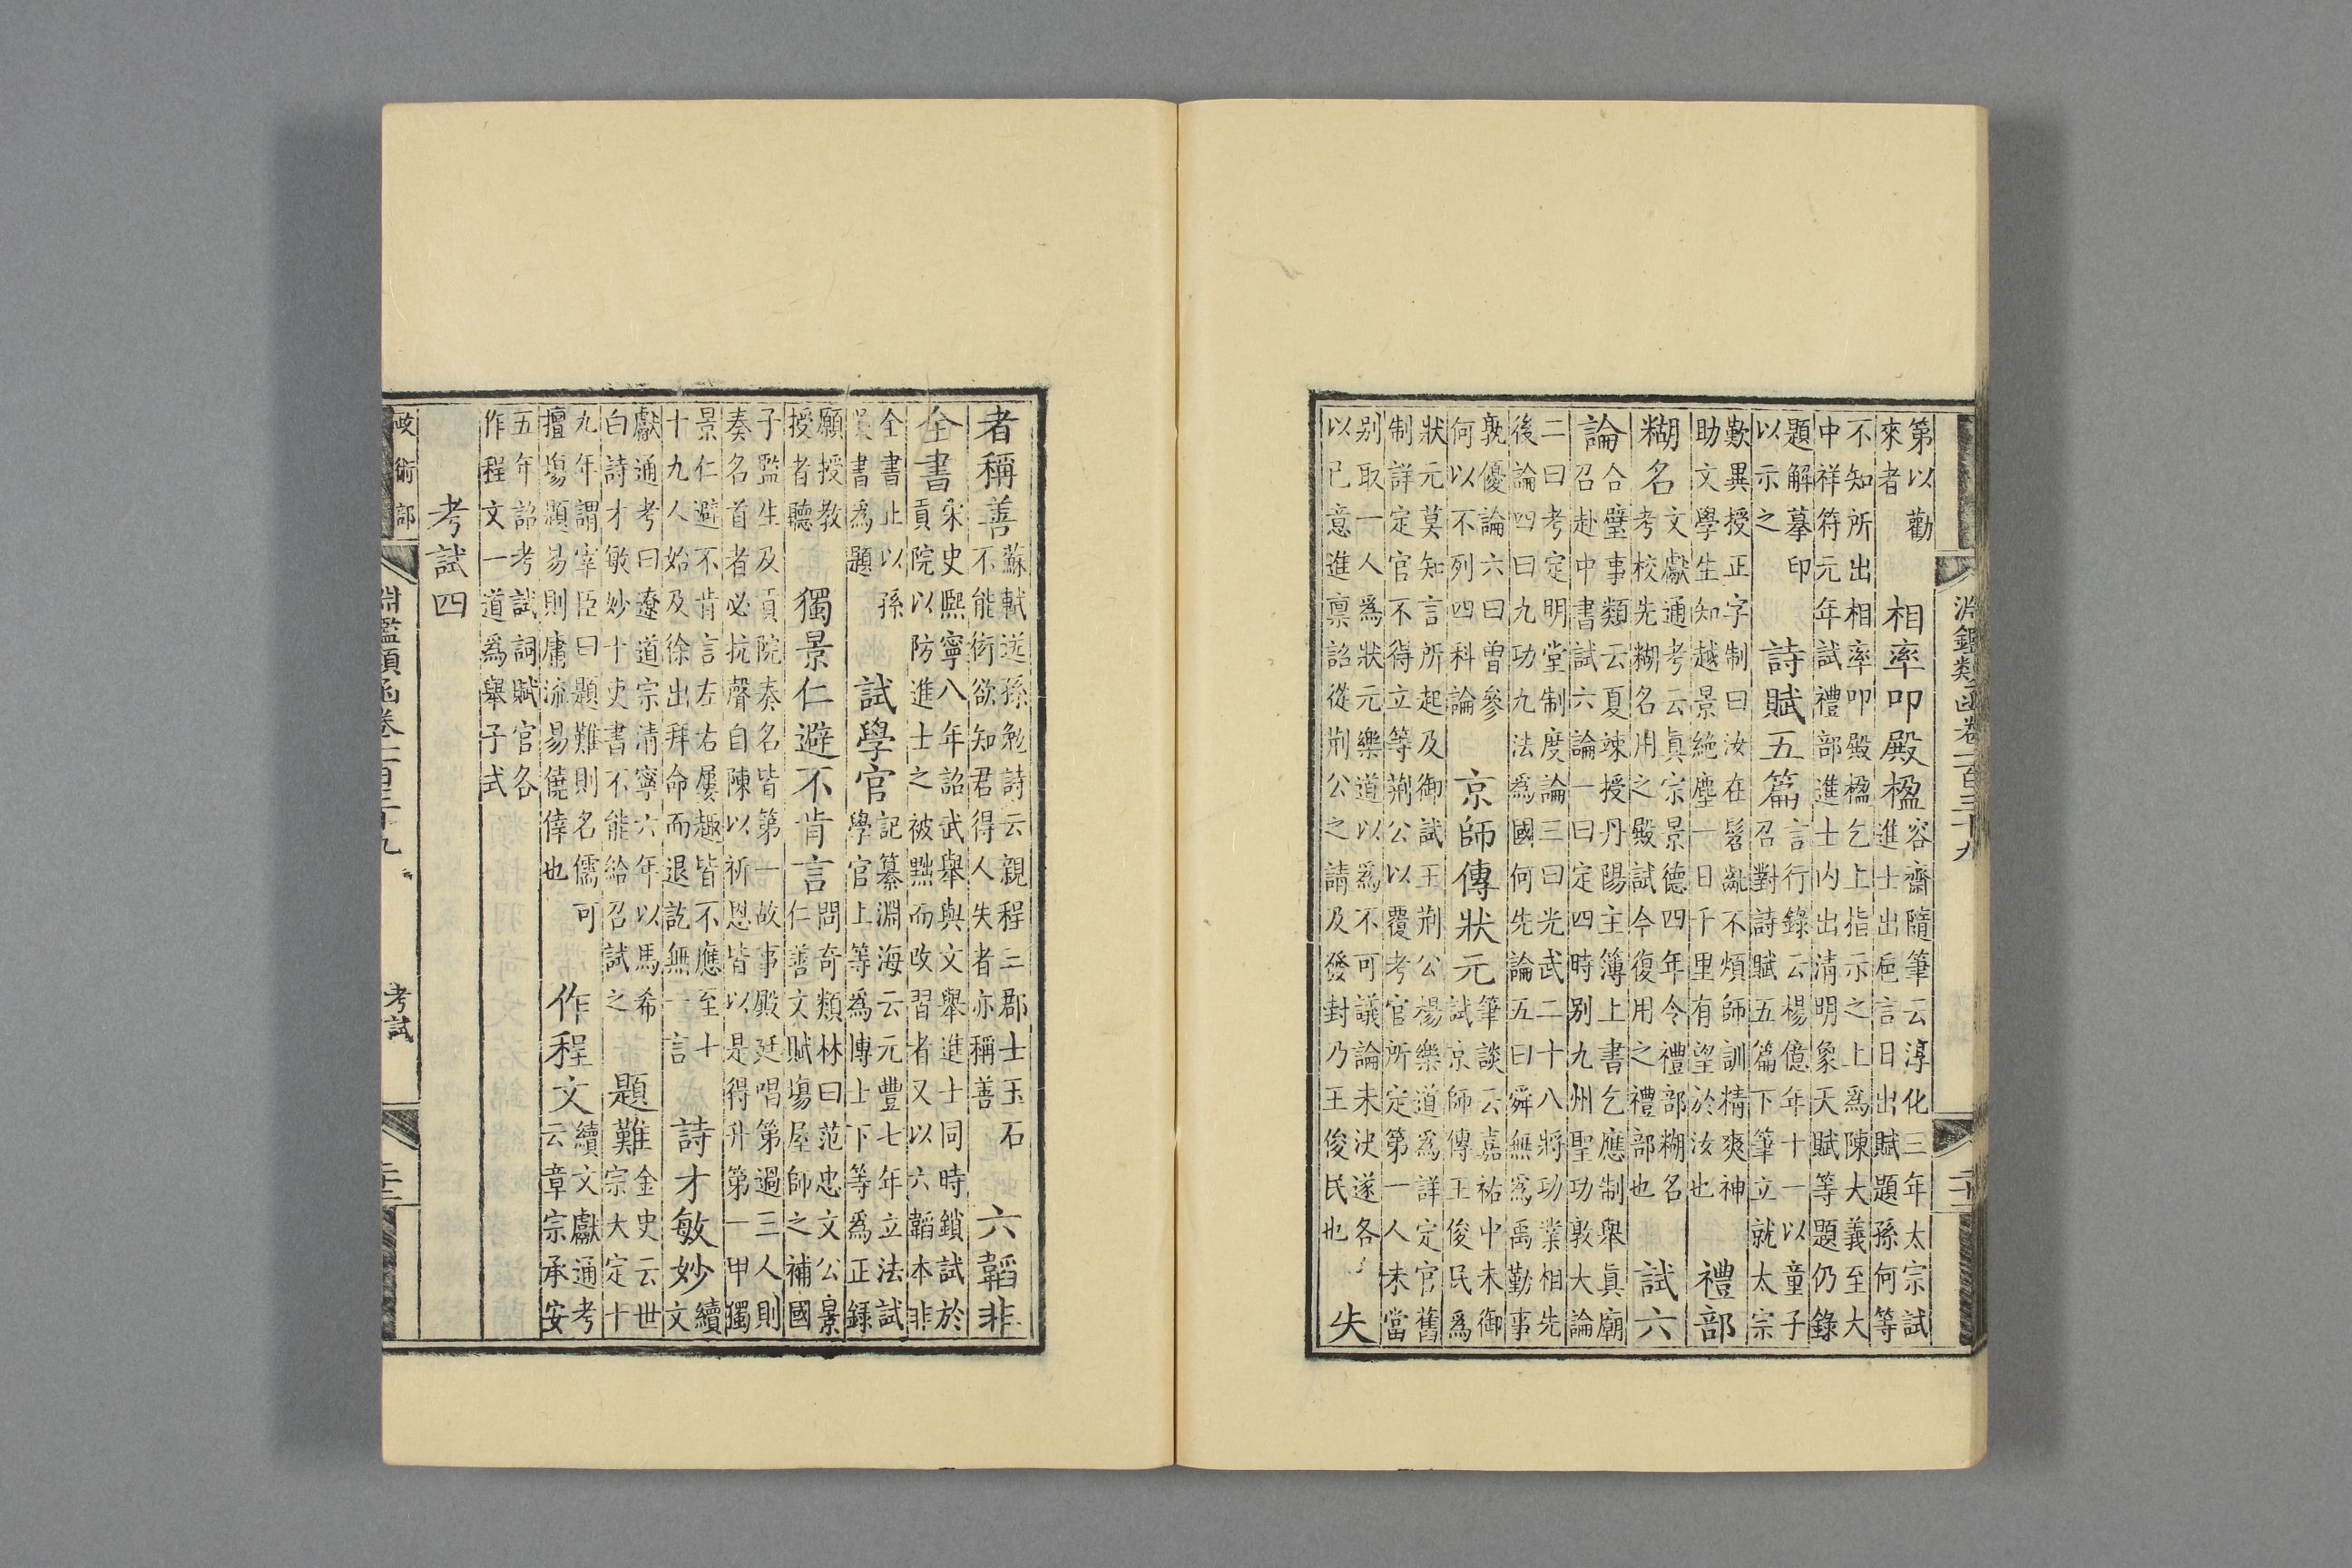 淵鑑類函卷一百三十九
二十二
第以勸
來者
相率叩殿楹
容齋隨筆云淳化三年太宗試
進士出巵言日出賦題孫何等
不知所出相率叩殿楹乞上指示之上爲陳大義至大
中祥符元年試禮部進士内出淸明象天賦等題仍錄
題解摹印
以示之
詩賦五篇
言行錄云楊億年十一以童子
召對詩賦五篇下筆立就太宗
歎異授正字制曰汝在髫齓不煩師訓精爽神
助文學生知越景絶塵一日千里有望於汝也
禮部
糊名
文獻通考云眞宗景德四年令禮部糊名
考校先糊名用之殿試今復用之禮部也
試六
論
合璧事類云夏竦授丹陽主簿上書乞應制舉眞廟
召赴中書試六論一曰定四時别九州聖功敦大論
二曰考定明堂制度論三曰光武二十八將功業相先
後論四曰九功九法爲國何先論五曰舜無爲禹勤事
孰優論六曰曾參
何以不列四科論
京師傳狀元
筆談云嘉祐中未御
試京師傳王俊民爲
狀元莫知言所起及御試王荆公楊樂道爲詳定官舊
制詳定官不得立等荆公以覆考官所定第一人未當
别取一人爲狀元樂道以爲不可議論未決遂各
以已意進稟詔從荆公之請及發封乃王俊民也
失
者稱善
蘇軾送孫勉詩云親程三郡士玉石
不能衒欲知君得人失者亦稱善
六韜非
全書
宋史熙寧八年詔武舉與文舉進士同時鎖試於
貢院以防進士之被黜而改習者又以六韜本非
全書止以孫
吳書爲題
試學官
記纂淵海云元豐七年立法試
學官上等爲博士下等爲正錄
願授教
授者聽
獨景仁避不肯言
問奇類林曰范忠文公景
仁善文賦塲屋師之補國
子監生及貢院奏名皆第一故事殿廷唱第過三人則
奏名首者必抗聲自陳以祈恩皆以是得升第一甲獨
景仁避不肯言左右屢趣皆不應至十
十九人始及徐出拜命而退訖無一言
詩才敏妙
續
文
獻通考曰遼道宗清寧六年以馬希
白詩才敏妙十吏書不能給召試之
題難
金史云世
宗大定十
九年謂宰臣曰題難則名儒可
擅塲題易則庸流易僥倖也
作程文
續文獻通考
云章宗承安
五年詔考試詞賦官各
作程文一道爲舉子式
考試四
政術部
淵鑑類函卷一百三十九
考試
二十三